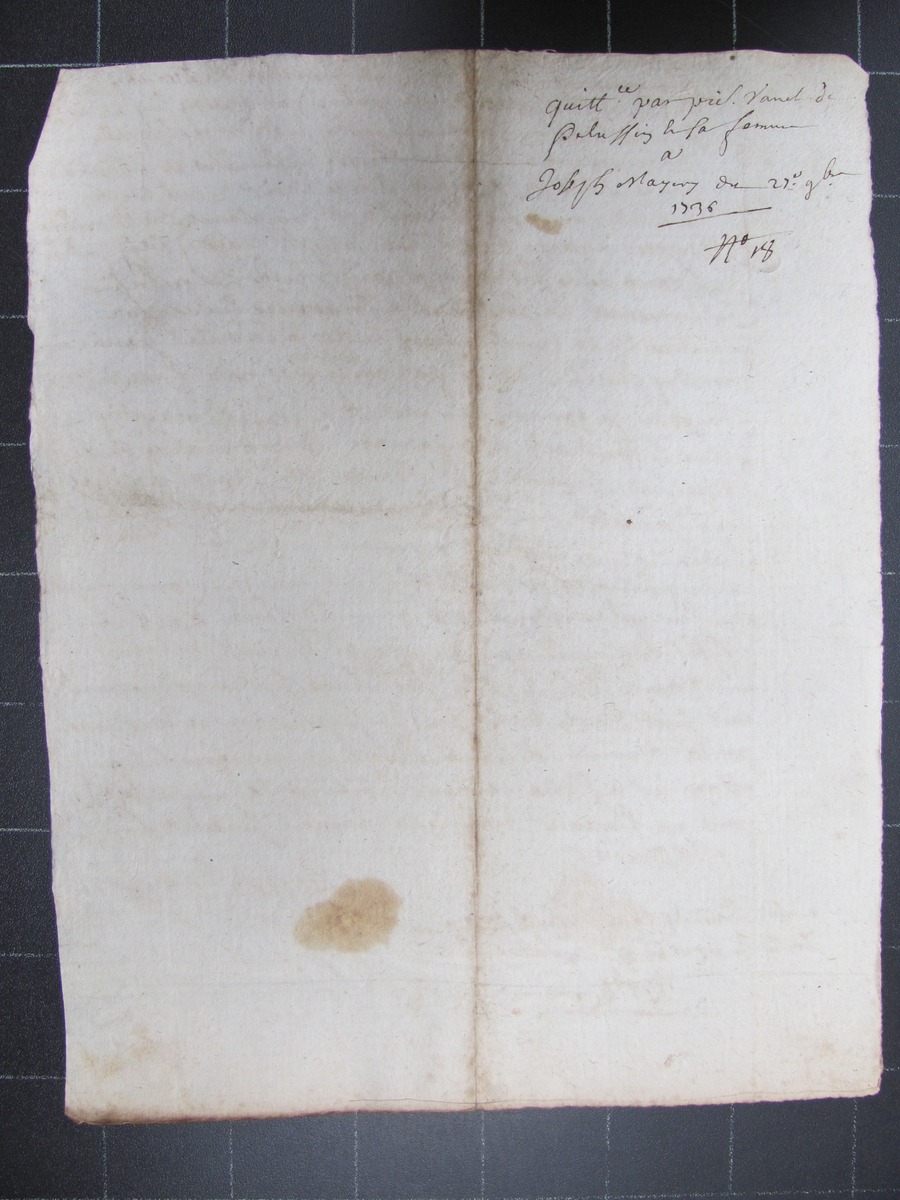 quitt.ce par piel. Vanel de
Pelussin & sa femme
a
Joseph Mayery du 27e 9bre
1736
No 18